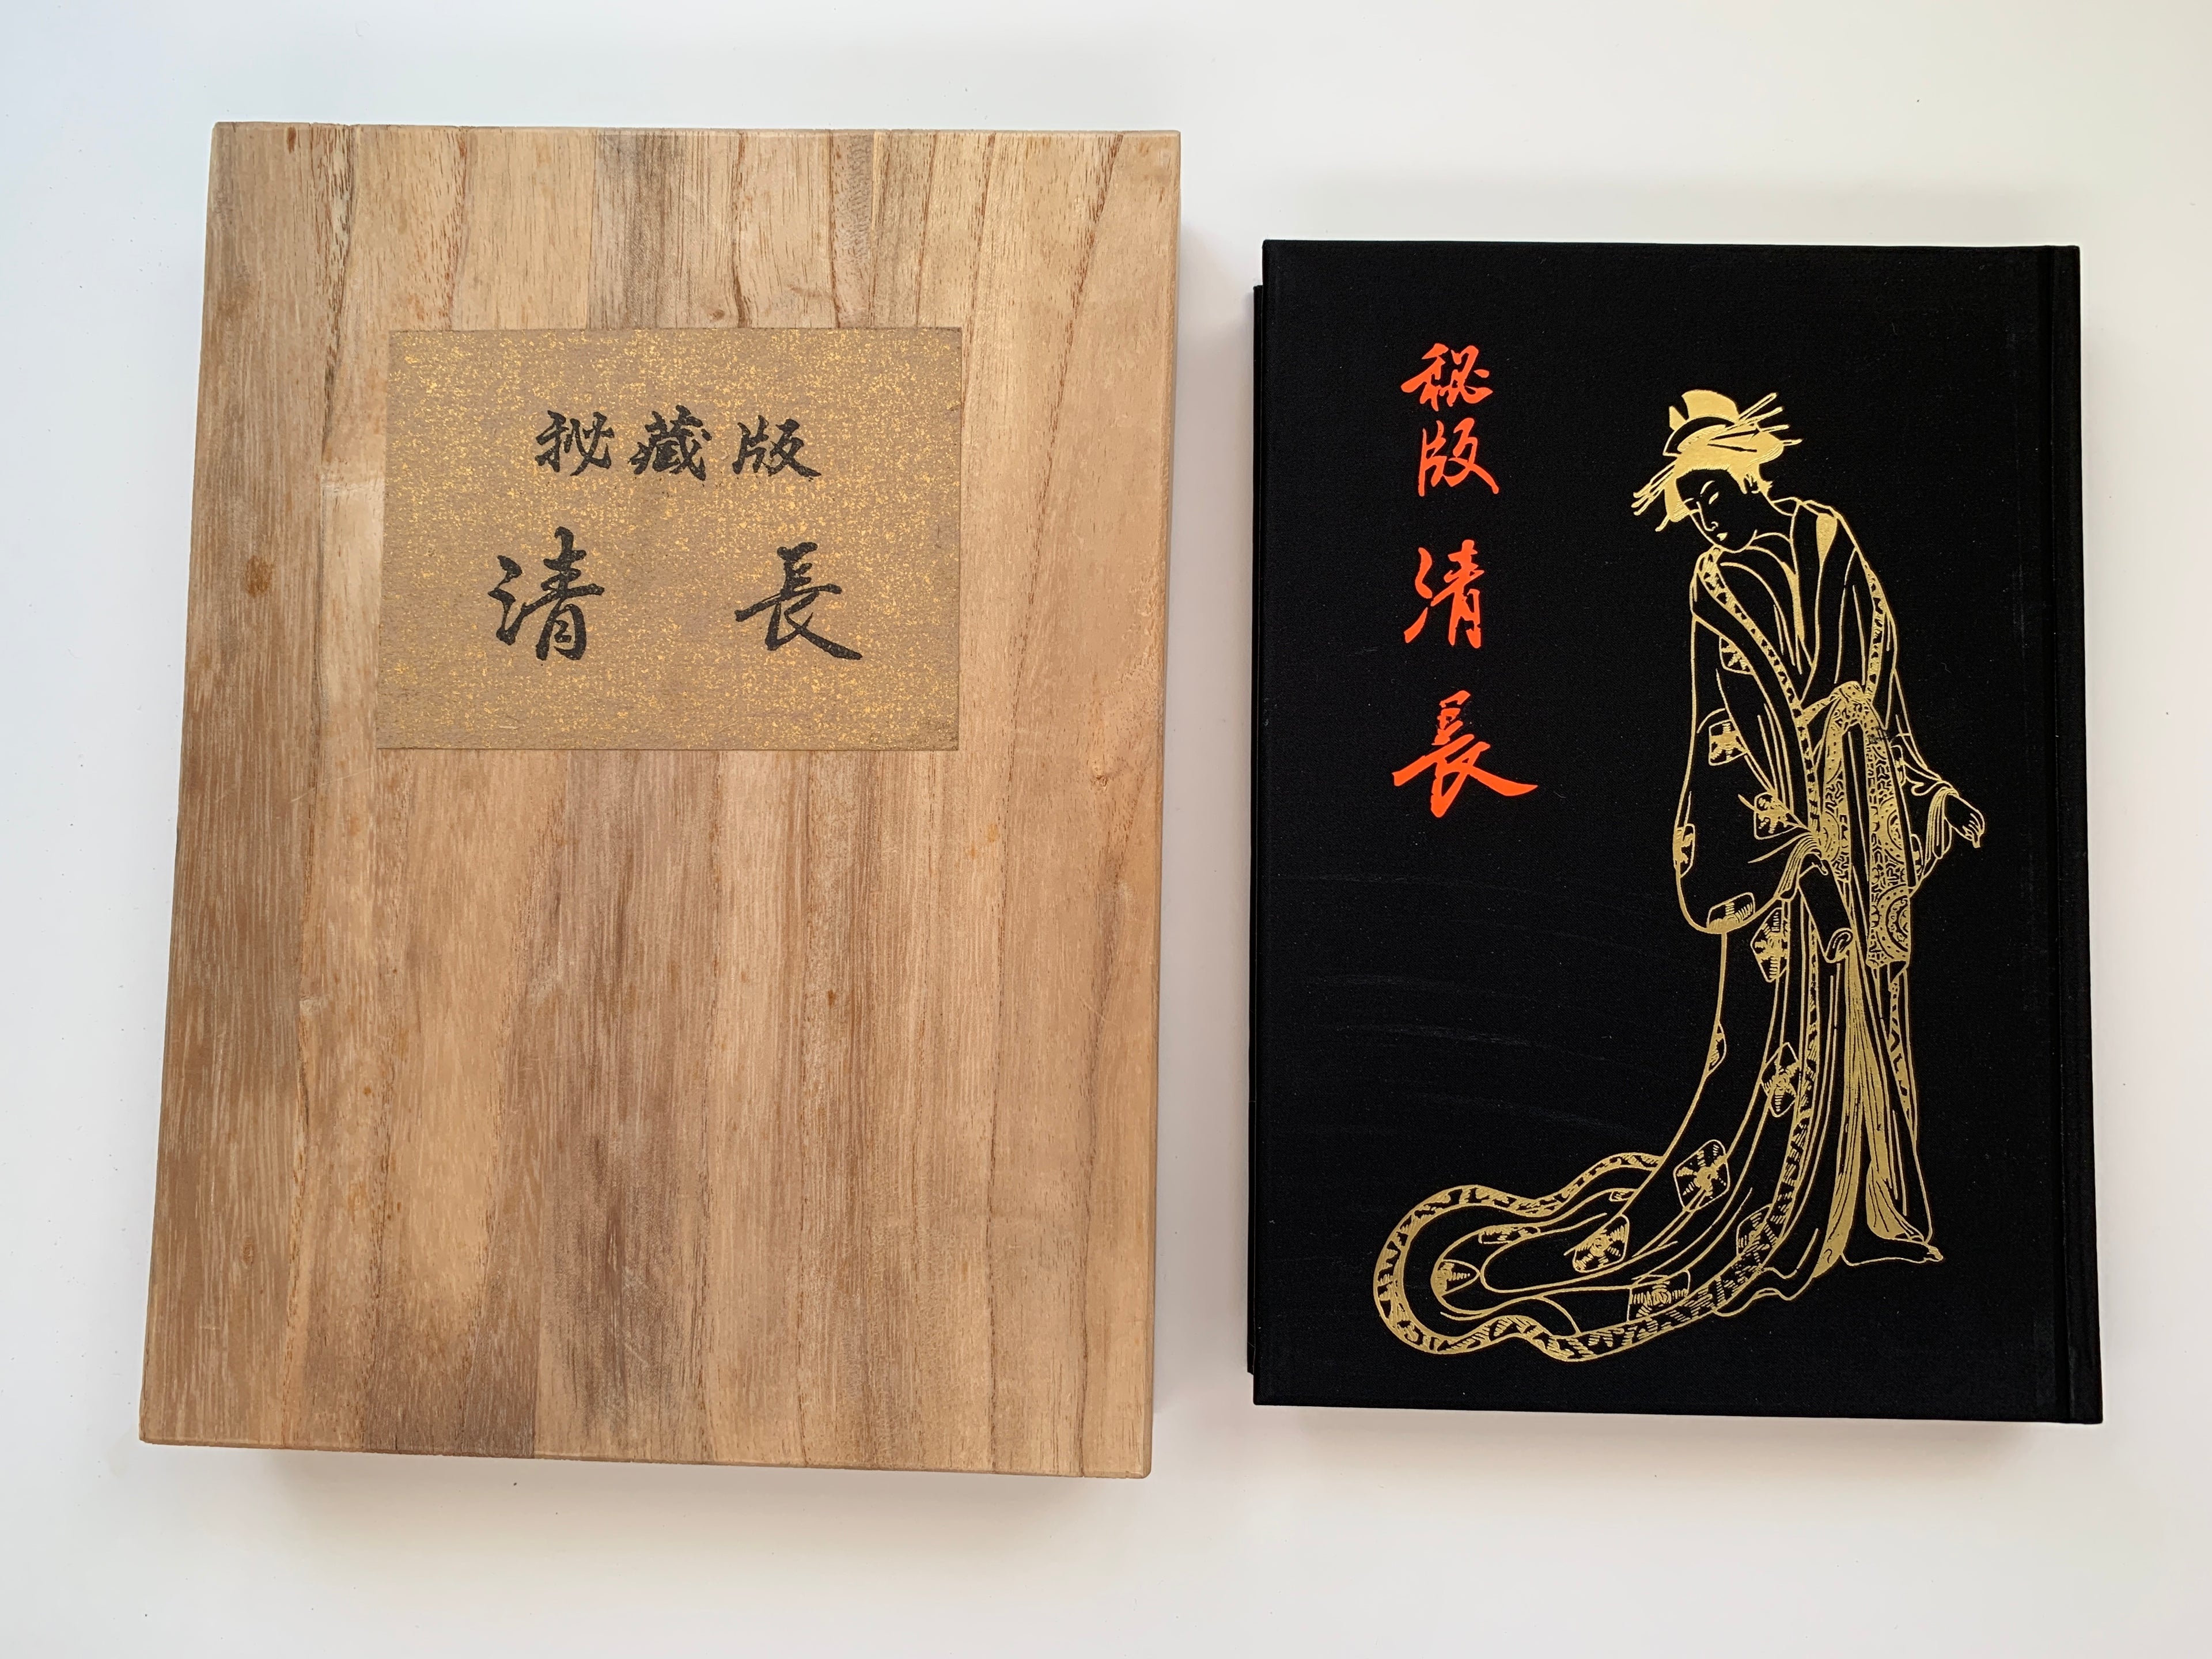 秘藏版
清長
秘版 清長